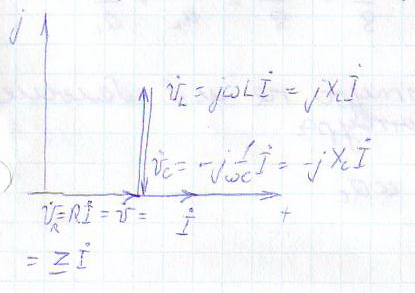 j
U̇_L = jωLİ = jX_Lİ
U̇_C = -j 1/ωC İ = -jX_Cİ
)
U̇_R = Rİ = U̇ = İ +
= Z̲ İ